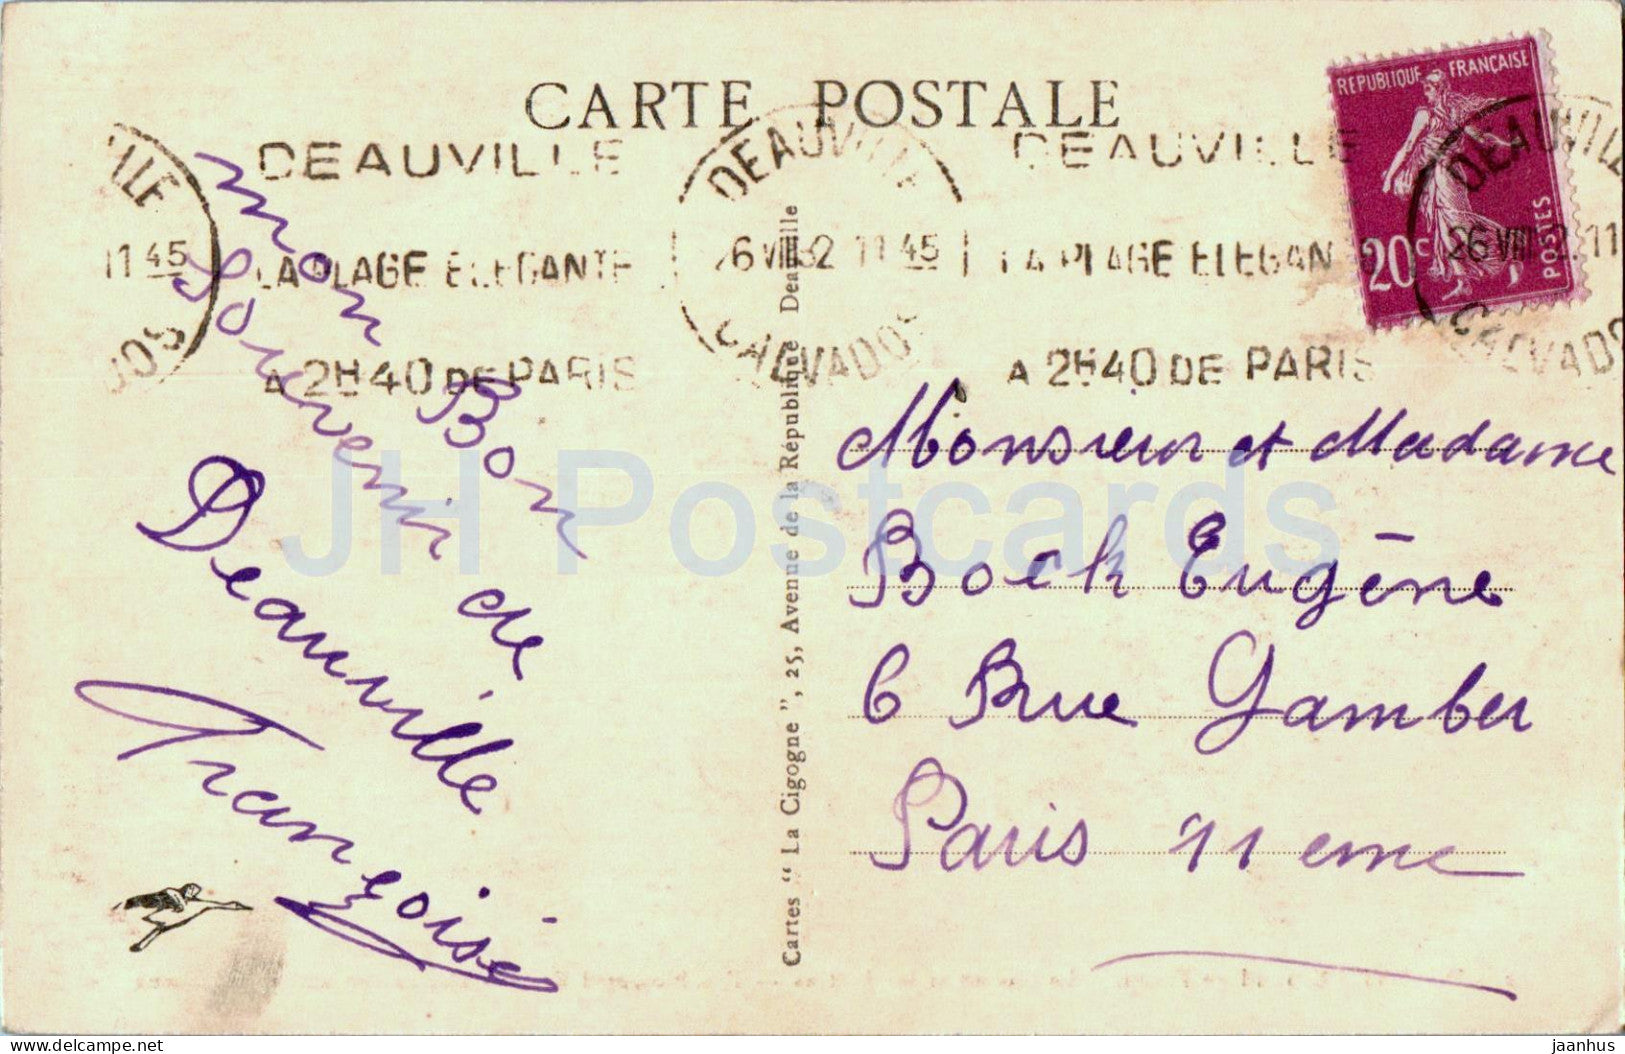 CARTE POSTALE
REPUBLIQUE FRANÇAISE
POSTES
20c
DEAUVILLE
LA PLAGE ELEGANTE
A 2H40 DE PARIS
11 45
DEAUVILLE
26 VIII 32 11 45
CALVADOS
DEAUVILLE
LA PLAGE ELEGAN
A 2H40 DE PARIS
DEAUVILLE
26 VIII 32 11
CALVADOS
mon Bon
Souvenir de
Deauville
Françoise
Cartes “ La Cigogne ”, 25, Avenue de la République Deauville
Monsieur et Madame
Boch Eugène
6 Rue Gamber
Paris 11 eme
JH Postcards
delcampe.net
jaanhus